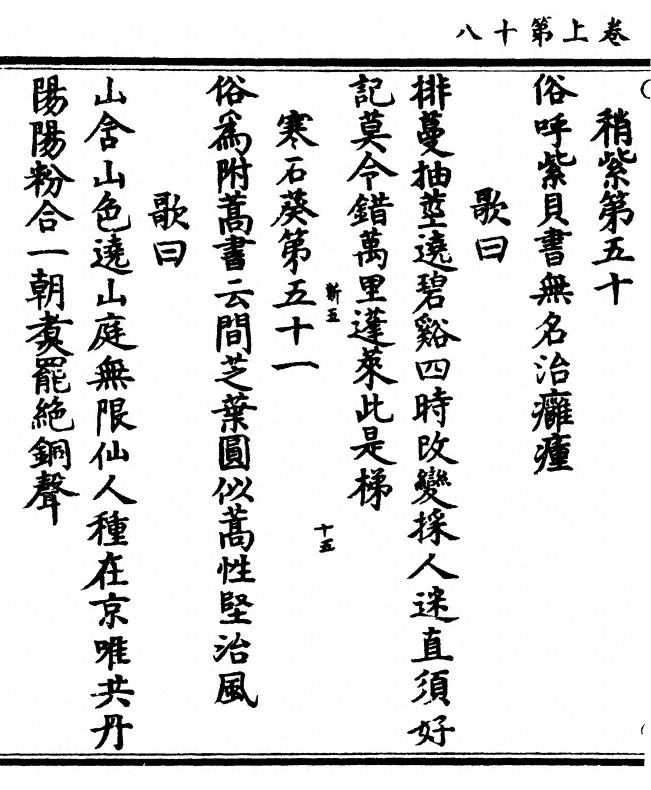 卷上第十八
稍紫第五十
俗呼紫貝書無名治癰瘇
歌曰
排蔓抽莖遶碧谿四時改變採人迷直須好
記莫令錯萬里蓬萊此是梯
寒石葵第五十一
斬五
十五
俗爲附蒿書云間芝葉圓似蒿性堅治風
歌曰
山含山色遶山庭無限仙人種在京唯共丹
陽陽粉合一朝煑罷絶銅聲